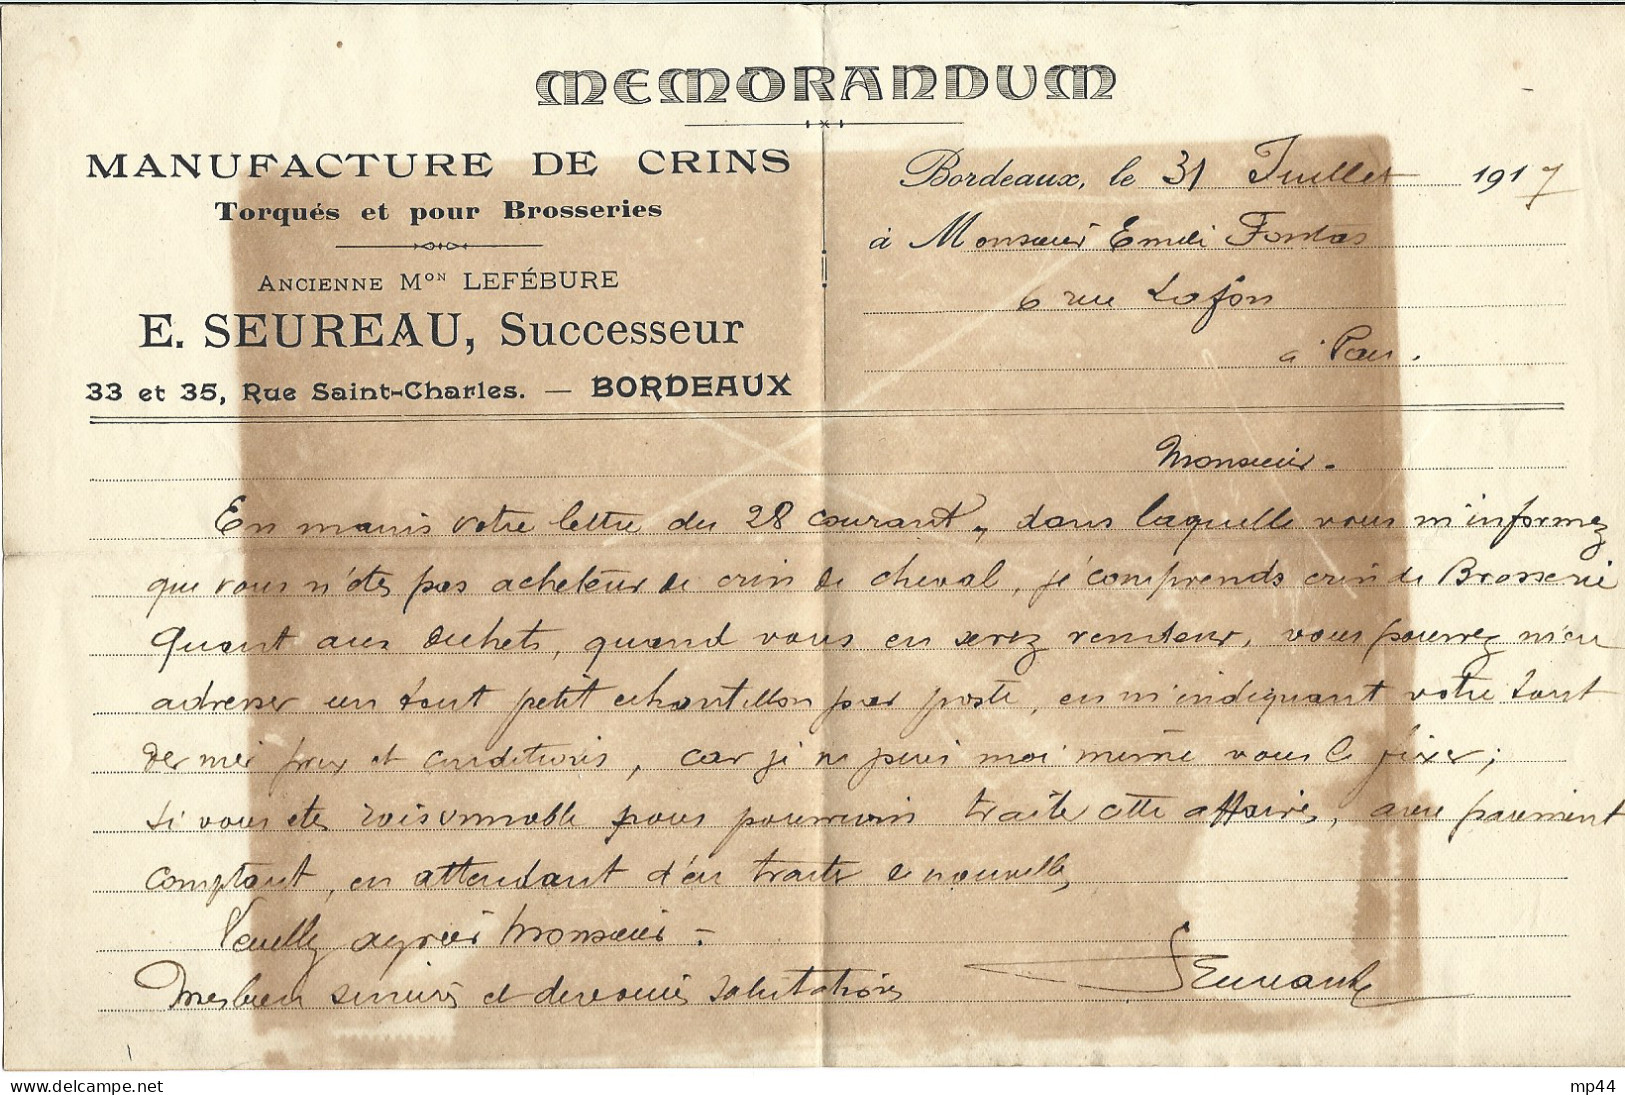 MEMORANDUM
MANUFACTURE DE CRINS
Torqués et pour Brosseries
ANCIENNE Mᴼᴺ LEFÉBURE
E. SEUREAU, Successeur
33 et 35, Rue Saint-Charles. — BORDEAUX
Bordeaux, le 31 Juillet 1917
à Monsieur Emile
6 rue Lafon
à Pau.
Monsieur.
En mains votre lettre du 28 courant, dans laquelle vous m'informez
que vous n'êtes pas acheteur de crin de cheval, je comprends crin de Brosserie
Quant aux déchets, quand vous en serez vendeur, vous pourrez m'en
adresser un tout petit echantillon par poste, en m'indiquant votre tout
dernier prix et conditions, car je ne puis moi même vous le fixer;
si vous etes raisonnable nous pourrions traiter cette affaire, avec paiement
comptant, en attendant d'en traiter de nouvelles
Veuillez agréer Monsieur -
Mes bien sincères et devouées salutations
Seureau
© delcampe.net
mp44